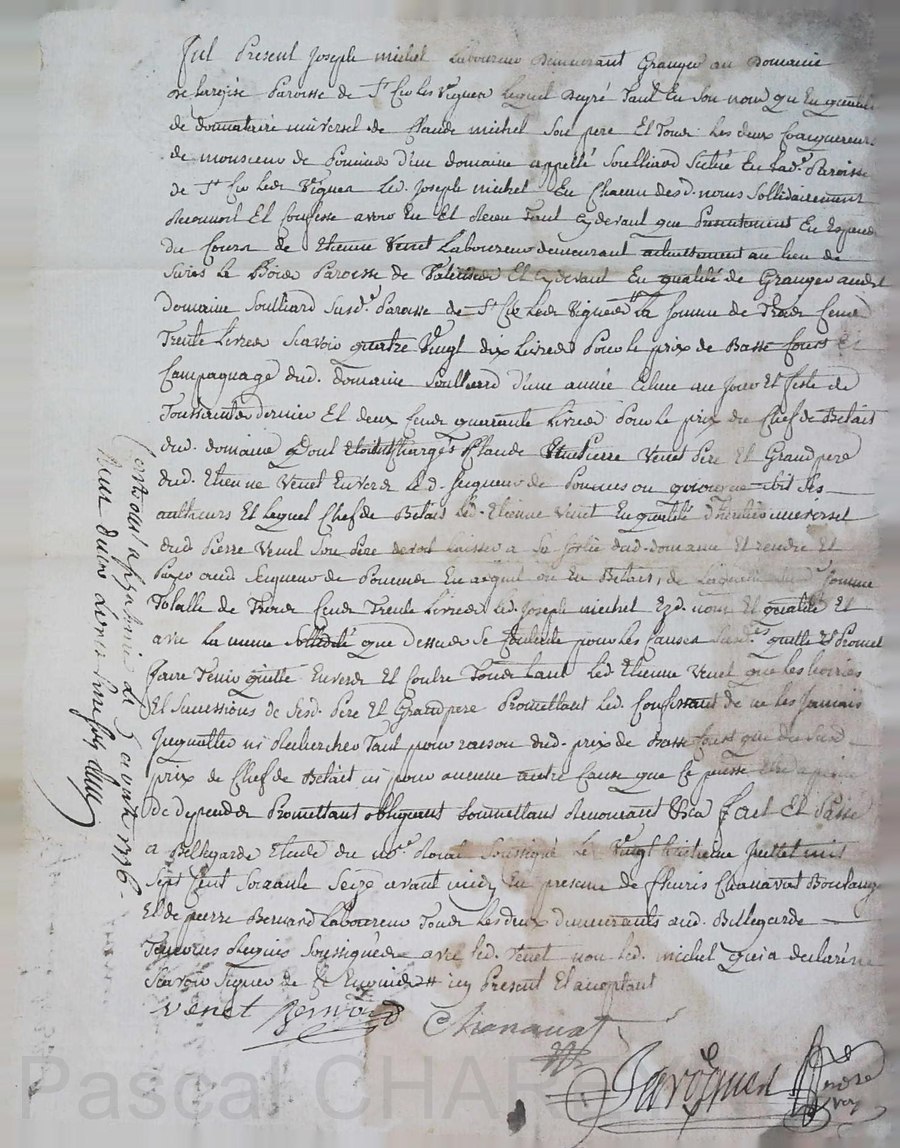 Fut Present Joseph michel Laboureur Demeurant Granger au Domaine
Paroisse de St Cire les Vignes Lequel De gré Tant En Son nom qu'En qualité
de donnataire universel de Claude michel Son pere Et Tous Les deux Coacquereurs
de monsieur de Pomiers d'un domaine appellé Soulliard Scitué En Lad.e Paroisse
de St Cire Les Vignes Led. Joseph michel En Chacun desd. noms Sollidairement
Reconnoit Et Confesse avoir Eu Et Receu Tant Cy devant que Presentement En Especes
du Cours de Etienne Venet Laboureur demeurant actuellement au lieu de
Paroisse de Valeille Et Cy devant En qualité de Granger aud.t
Domaine Soulliard Susd.e Paroisse de St Cire Les Vignes La Somme de Trois Cent
Trente Livres Scavoir quatre Vingt dix Livres Pour le prix de Basse Cours Et
Campagnage dud. domaine Soulliard d'une année Echue au Jour Et feste de
Toussaints dernier Et deux Cent quarante Livres Pour le prix du Chef de Betait
dud. domaine Dont Etoient Chargés Claude Et Pierre Venet Pere Et Grand pere
dud. Etienne Venet Envers Led. Seigneur de Pomiers ou
autheurs Et Lequel Chef de Betait Led. Etienne Venet En qualité d'heritier universel
dud. Pierre Venet Son Pere devoit laisser a Sa Sortie dud. domaine Et rendre Et
Payer aud. Seigneur de Pomiers En argent ou En Betait, de Laquelle Somme
Totalle de Trois Cent Trente Livres Led. Joseph michel Ezd. noms Et qualité Et
avec La meme Sollidité que dessus Se Contente pour les Causes Susd.es quitte Et Promet
faire Tenir quitte Envers Et Contre Tous Tant Led. Etienne Venet que Les hoiries
Et Successions de Sesd. Pere Et Grand pere Promettant Led. Confessant de ne les Jamais
Inquietter ni Rechercher Tant pour raison dud. prix de Basse Cours que du Susd.
prix de Chef de Betait ni pour aucune autre Cause que Ce puisse Etre a peine
De depends Promettant obligeant Soumettant Renonceant Fait Et Passé
a Bellegarde Etude du no.re Royal Soussigné Le Vingt huitieme Juillet mil
Sept Cent Soixante Seize avant midy En presence de fleuris Chanavat Boulanger
Et de pierre Bernard Laboureur Tous Les deux demeurants aud. Bellegarde
Temoins Requis Soussignés avec Led. Venet non Led. michel qui a declaré ne
Scavoir Signer de Ce Enquis icy Present Et acceptant
Venet Bernard Chanavat
Controllé a le 3 aoust 1776
Reçu
Pascal CHAR